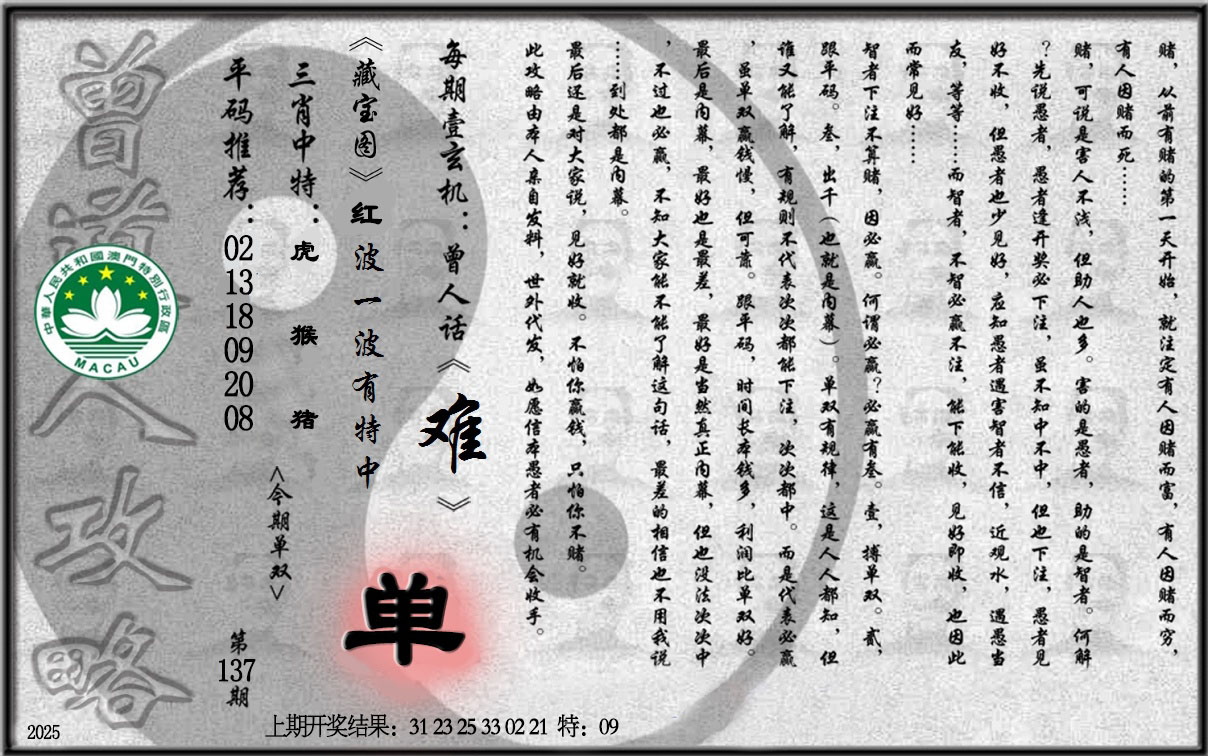 赌，从前有赌的第一天开始，就注定有人因赌而富，有人因赌而穷，
有人因赌而死……
赌，可说是害人不浅，但助人也多。害的是愚者，助的是智者。何解
？先说愚者，愚者逢开奖必下注，虽不知中不中，但也下注，愚者见
好不收，但愚者也少见好，应知愚者遇害智者不信，近观水，遇愚当
友，等等……而智者，不智必赢不注，能下能收，见好即收，也因此
而常见好……
智者下注不算赌，因必赢。何谓必赢？必赢有叁。壹，搏单双。贰，
跟平码。叁，出千（也就是内幕）。单双有规律，这是人人都知，但
谁又能了解，有规则不代表次次都能下注，次次都中。而是代表必赢
，虽单双赢钱慢，但可靠。跟平码，时间长本钱多，利润比单双好。
最后是内幕，最好也是最差，最好是当然真正内幕，但也没法次次中
，不过也必赢，不知大家能不能了解这句话，最差的相信也不用我说
……到处都是内幕。
最后还是对大家说，见好就收。不怕你赢钱，只怕你不赌。
此攻略由本人亲自发料，世外代发，如愿信本愚者必有机会收手。
每期壹玄机：曾人话《难》
《藏宝图》红波一波有特中
三肖中特：虎 猴 猪
平码推荐：02 13 18 09 20 08
<今期单双>
单
第137期
曾道人攻略
中華人民共和國澳門特別行政區
MACAU
2025
上期开奖结果：31 23 25 33 02 21 特：09